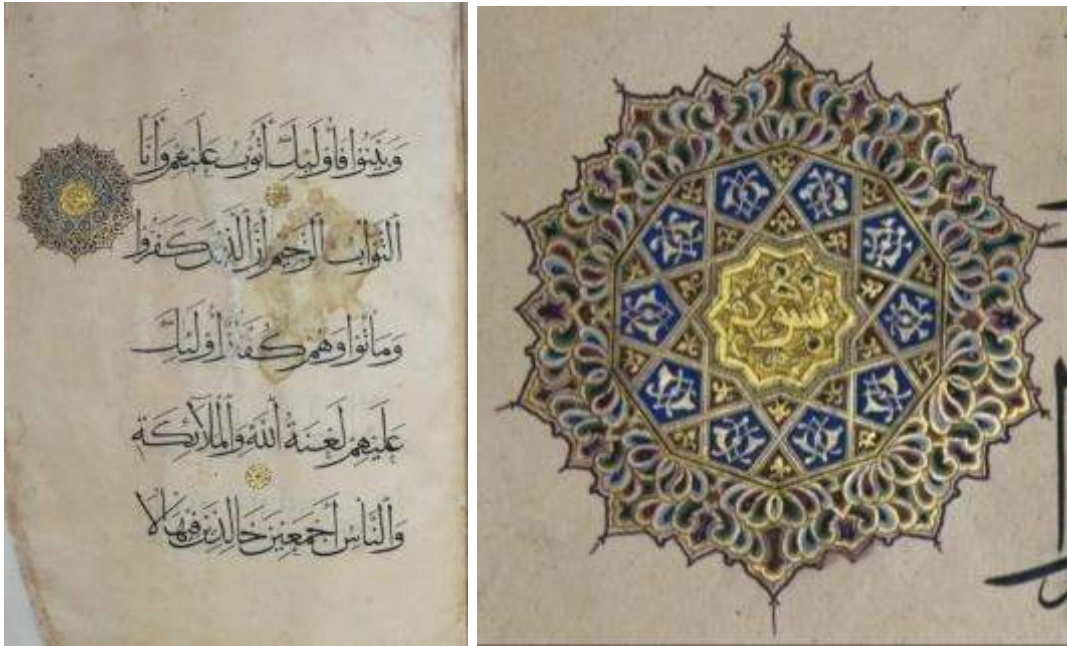 وَبَيَّنُوا فَأُولَئِكَ أَتُوبُ عَلَيْهِمْ وَأَنَا
التَّوَّابُ الرَّحِيمُ إِنَّ الَّذِينَ كَفَرُوا
وَمَاتُوا وَهُمْ كُفَّارٌ أُولَئِكَ
عَلَيْهِمْ لَعْنَةُ اللَّهِ وَالْمَلَائِكَةِ
وَالنَّاسِ أَجْمَعِينَ خَالِدِينَ فِيهَا لَا